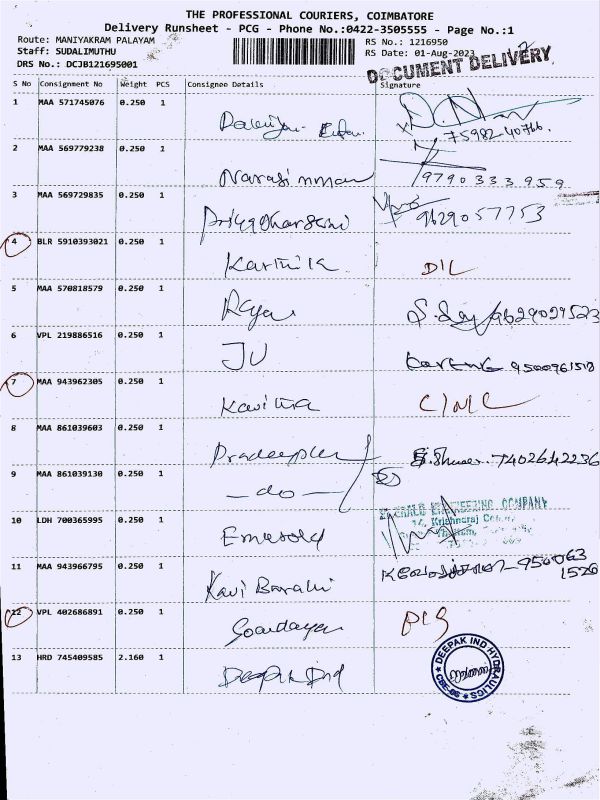 THE PROFESSIONAL COURIERS, COIMBATORE
Delivery Runsheet - PCG - Phone No.:0422-3505555 - Page No.:1
Route: MANIYAKRAM PALAYAM RS No.: 1216950
Staff: SUDALIMUTHU RS Date: 01-Aug-2023
DRS No.: DCJB121695001 DOCUMENT DELIVERY
S No Consignment No Weight PCS Consignee Details Signature
1 MAA 571745076 0.250 1
75982-40766.
2 MAA 569779238 0.250 1
Narasimman 9790333959
3 MAA 569729835 0.250 1
Priyadharsani 9629057753
4 BLR 5910393021 0.250 1
Karthik D/L
5 MAA 570818579 0.250 1
Raja 9629029523
6 VPL 219886516 0.250 1
JU 9500961518
7 MAA 943962305 0.250 1
Kavitha C/NC
8 MAA 861039603 0.250 1
Pradeep 7402642236
9 MAA 861039130 0.250 1
- do -
10 LDH 700365995 0.250 1
EMERALD ENGINEERING COMPANY
14, Krishnaraj
Emerald
11 MAA 943966795 0.250 1
Kavi Barathi 950063
1520
12 VPL 402686891 0.250 1
13 HRD 745409585 2.160 1
Deepak Ind
DEEPAK IND HYDRAULICS
CBE-06